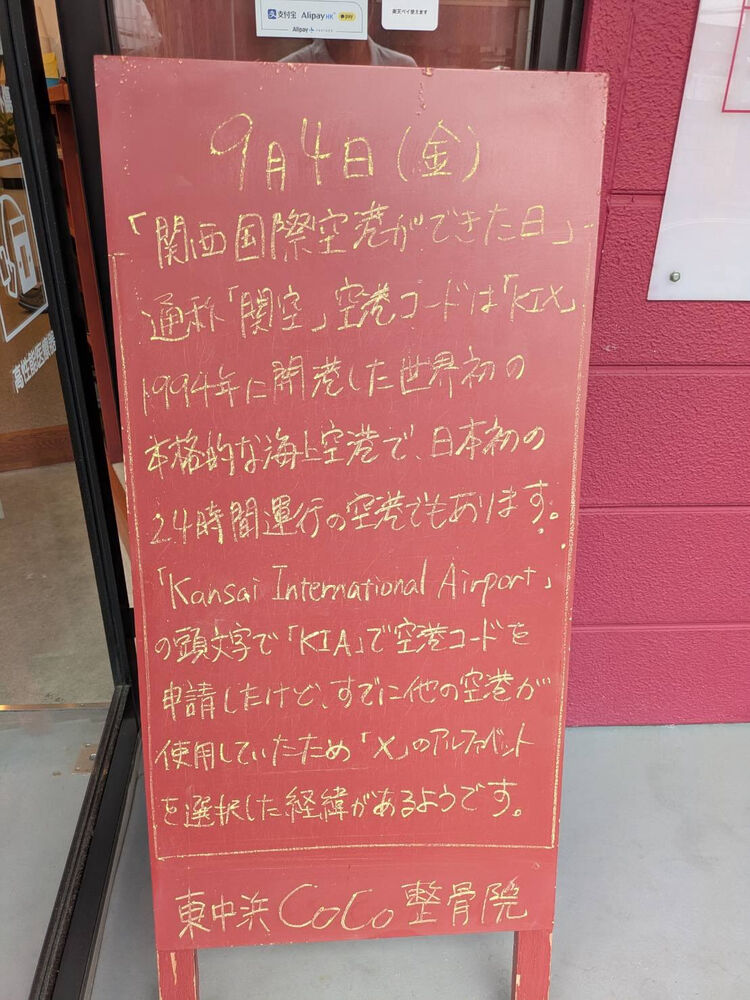 支付宝 AlipayHK pay
Alipay+
楽天ペイ使えます
9月4日(金)
「関西国際空港ができた日」
通称「関空」空港コードは「KIX」
1994年に開港した世界初の
本格的な海上空港で、日本初の
24時間運行の空港でもあります。
「Kansai International Airport」
の頭文字で「KIA」で空港コードを
申請したけど、すでに他の空港が
使用していたため「X」のアルファベット
を選択した経緯があるようです。
東中浜CoCo整骨院
高性能医療機器